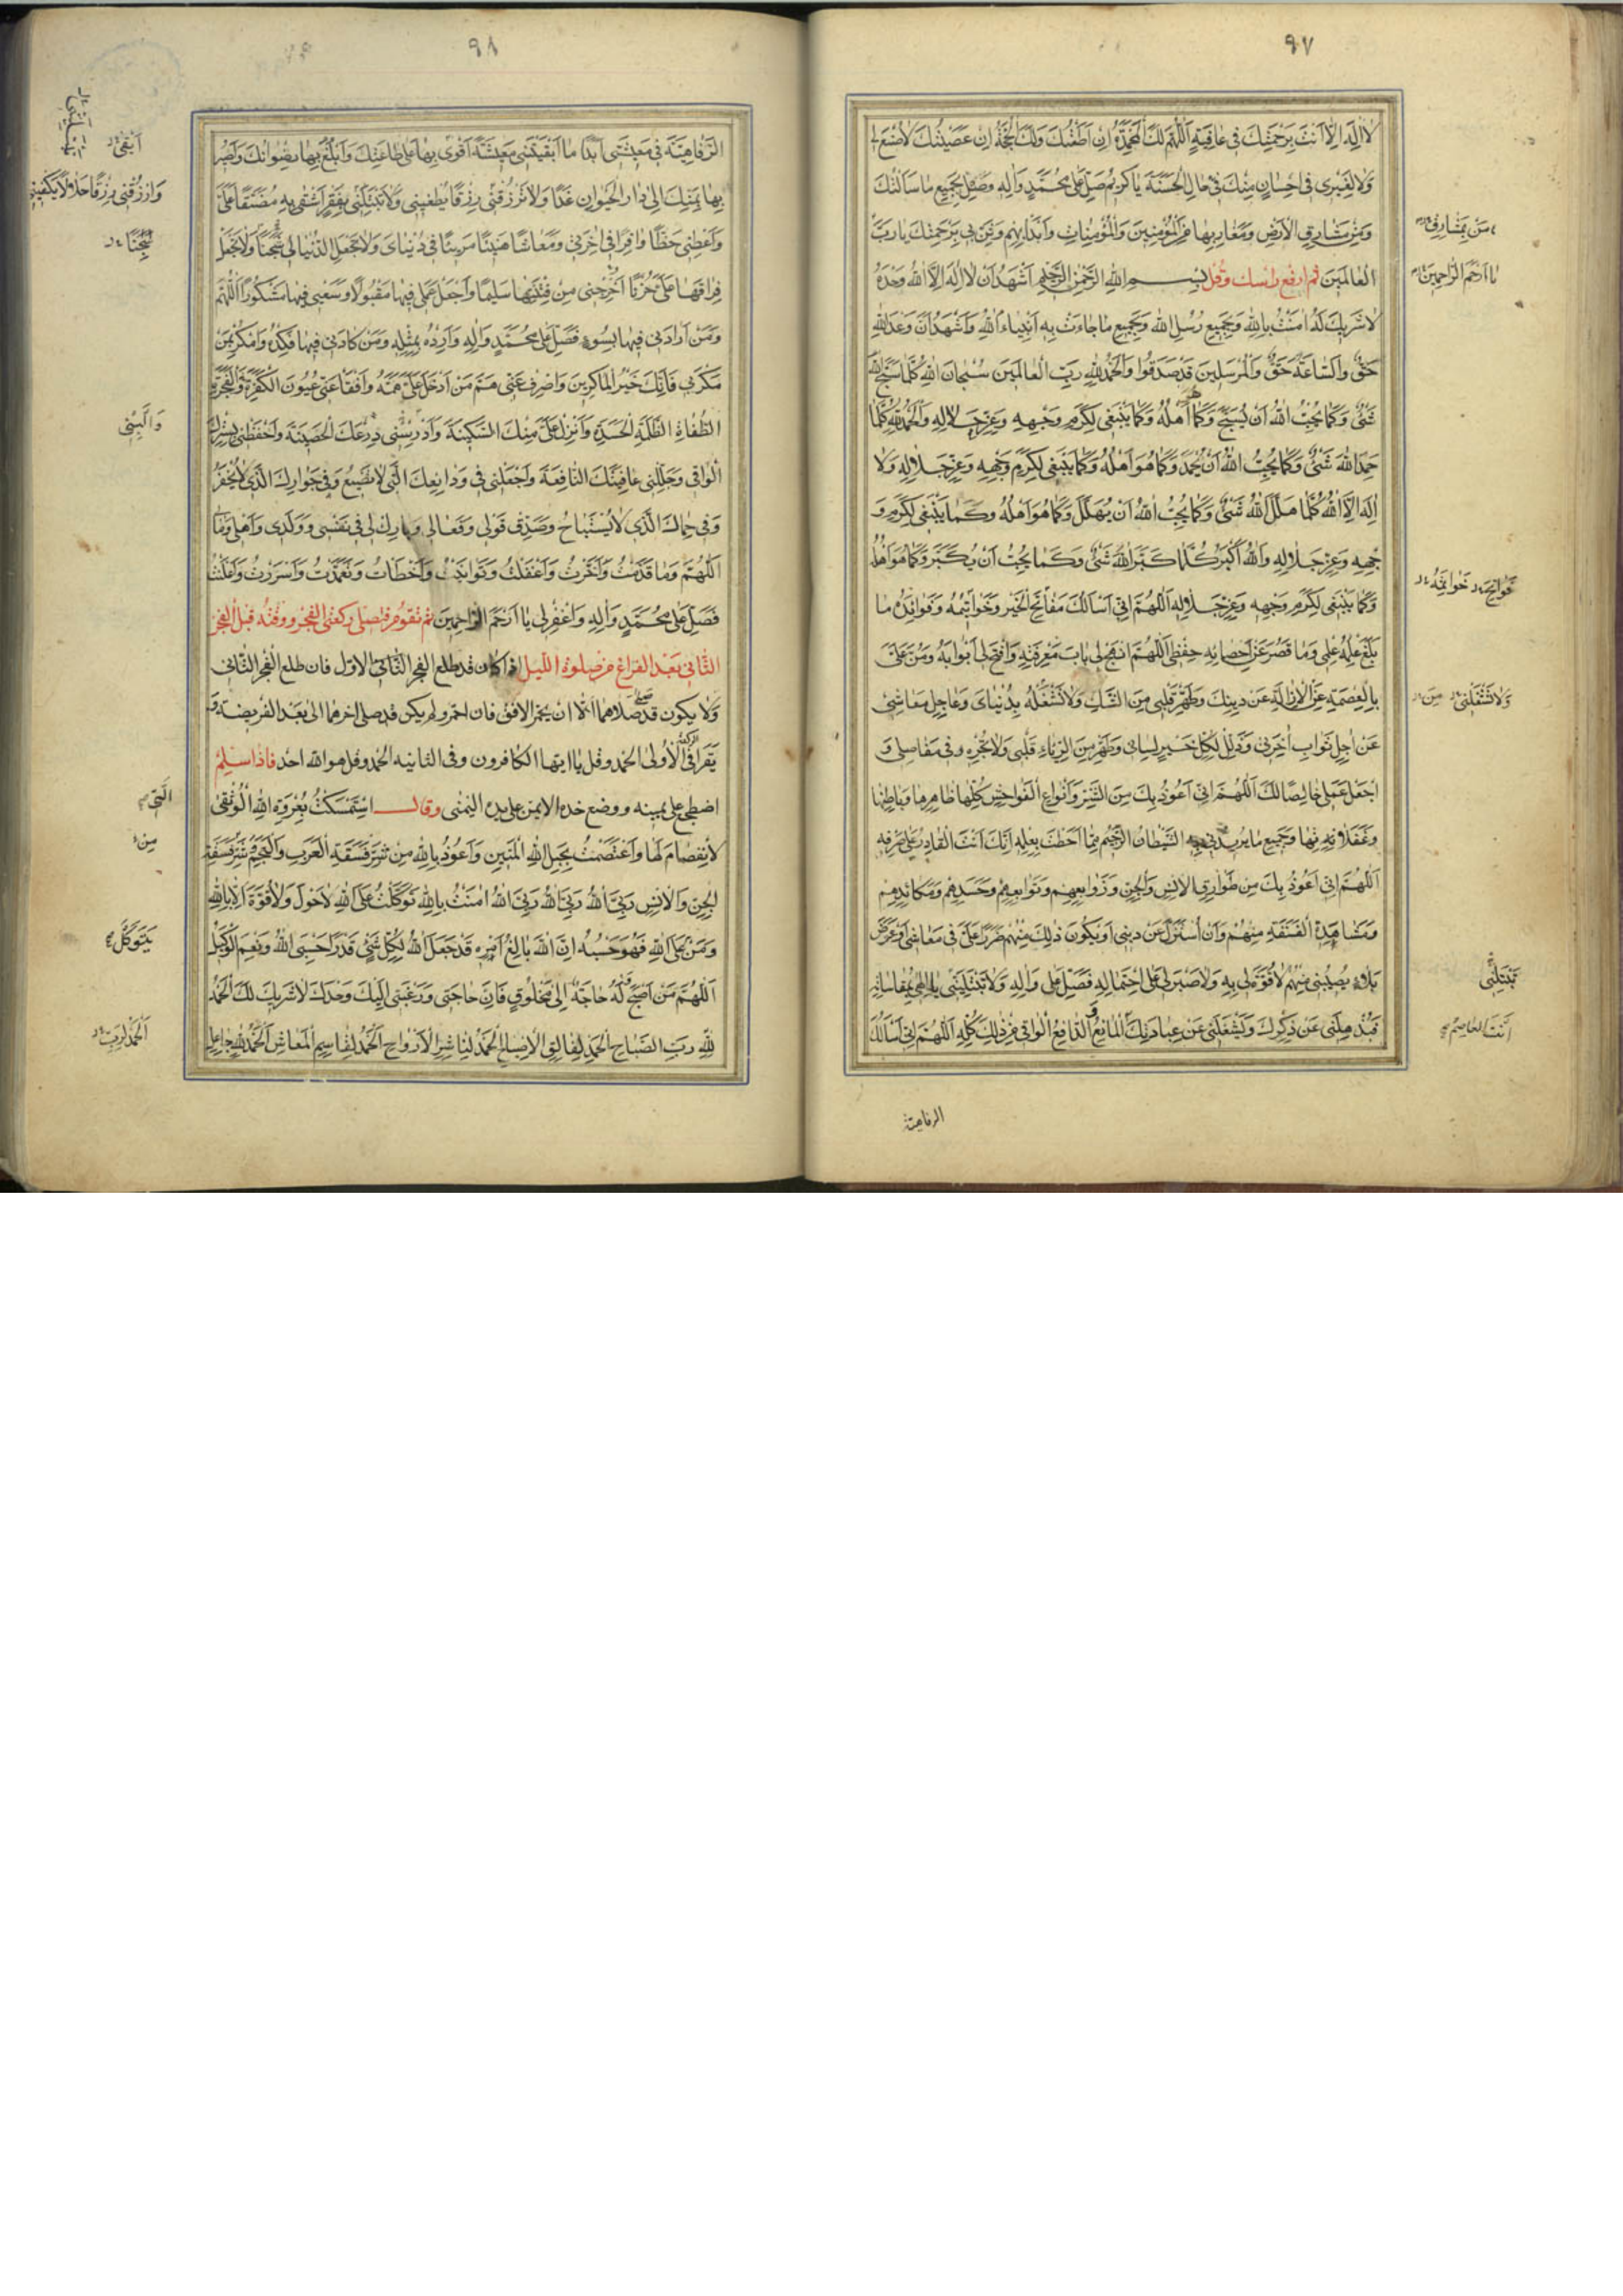 ٩٧
لا اله الا انت برحمتك فى عافية اللهم لك المحمدة ان اطعتك ولك الحجة ان عصيتك لا صنع لى
ولا لغيرى فى احسان منك فى حال الحسنة يا كريم صل على محمد واله وصل بجميع ما سالتك
ومن مشارق الارض ومغاربها من المؤمنين والمؤمنات وابدا بهم وثن بى برحمتك يا رب
العالمين ثم ارفع راسك وقل بسم الله الرحمن الرحيم اشهد ان لا اله الا الله وحده
لا شريك له امنت بالله وبجميع رسل الله وبجميع ما جاءت به انبياء الله واشهد ان وعد الله
حق والساعة حق والمرسلين قد صدقوا والحمد لله رب العالمين سبحان الله كلما سبح الله
شئ وكما يحب الله ان يسبح وكما هو اهله وكما ينبغى لكرم وجهه وعز جلاله والحمد لله كلما
حمد الله شئ وكما يحب الله ان يحمد وكما هو اهله وكما ينبغى لكرم وجهه وعز جلاله ولا
اله الا الله كلما هلل الله شئ وكما يحب الله ان يهلل وكما هو اهله وكما ينبغى لكرم و
جهه وعز جلاله والله اكبر كلما كبر الله شئ وكما يحب ان يكبر وكما هو اهله
وكما ينبغى لكرم وجهه وعز جلاله اللهم انى اسالك مفاتح الخير وخواتيمه وفوائده ما
بلغ علمه علمى وما قصر عن احصائه حفظى اللهم انهج لى باب معرفته وافتح لى ابوابه ومن على
بالعصمة عن الازالة عن دينك وطهر قلبى من الشك ولا تشغله بدنياى وعاجل معاشى
عن اجل ثواب اخرتى وذلل لكل خير لسانى وطهر من الرياء قلبى ولا تجره فى مفاصلى و
اجعل عملى خالصا لك اللهم انى اعوذ بك من الشر وانواع الفواحش كلها ظاهرها وباطنها
وغفلاتها وجميع ما يريدنى به الشيطان الرجيم مما احطت بعلمه انك انت القادر على صرفه
اللهم انى اعوذ بك من طوارق الانس والجن وزوابعهم وتوابعهم وحسدهم ومكائدهم
ومشاهدة الفسقة منهم وان استزل عن دينى او يكون ذلك منهم ضررا على فى معاشى او عرض
بلاء يصيبنى منهم لا قوة لى به ولا صبر لى على احتماله فصل على واله ولا تبتلينى يا الهى بمقاساته
فيذهلنى عن ذكرك ويشغلنى عن عبادتك المانع الدافع الواقى من ذلك كله اللهم انى اسالك
من بمشارق
يا ارحم الراحمين
فواتحه خواتمه
ولا تشغلنى
من
تبتلنى
انت العاصم
الرفاهية
٩٨
الرفاهية فى معيشتى ابدا ما ابقيتنى معيشة اقوى بها على طاعتك وابلغ بها رضوانك واصير
بها بمنك الى دار الحيوان غدا ولا ترزقنى رزقا يطغينى ولا تبتلنى بفقر اشقى به مضيقا على
واعطنى حظا وافرا فى اخرتى ومعاشا هنيئا مريئا فى دنياى ولا تجعل الدنيا لى شجنا ولا تجعل
فراقها على حزنا اخرجنى من فتنتها سليما واجعل عملى فيها مقبولا وسعيى فيها مشكورا اللهم
ومن ارادنى فيها بسوء فصل على محمد واله وارده بمثله ومن كادنى فيها فكده وامكر بمن
مكر بى فانك خير الماكرين واصرف عنى هم من ادخل على همه وافقا عنى عيون الكفرة والفجرة
الطغاة الظلمة الحسدة وانزل على منك السكينة وادرسنى درعك الحصينة واحفظنى بسترك
الواقى وجللنى عافيتك النافعة واجعلنى فى ودائعك التى لا تضيع وفى جوارك الذى لا يخفر
وفى حماك الذى لا يستباح وصدق قولى وفعالى وبارك لى فى نفسى وولدى واهلى ومالى
اللهم وما قدمت واخرت واغفلت وتوانيت واخطات وتعمدت واسررت واعلنت
فصل على محمد واله واغفر لى يا ارحم الراحمين ثم تقوم فتصلى ركعتى الفجر ووقته قبل الفجر
الثانى بعد الفراغ من صلوة الليل اذا كان قد طلع الفجر الاول فان طلع الفجر الثانى
ولا يكون قد صلاهما الا ان يحمر الافق فان احمر ولم يكن قد صلى اخرهما الى بعد الفريضة و
يقرا فى الاولى الحمد وقل يا ايها الكافرون وفى الثانيه الحمد وقل هو الله احد فاذا سلم
اضطجع على يمينه ووضع خده الايمن على يده اليمنى وقال استمسكت بعروة الله الوثقى
لا انفصام لها واعتصمت بحبل الله المتين واعوذ بالله من شر فسقة العرب والعجم وشر فسقة
الجن والانس ربى الله ربى الله ربى الله امنت بالله توكلت على الله لا حول ولا قوة الا بالله
ومن على الله فهو حسبه ان الله بالغ امره قد جعل الله لكل شئ قدرا حسبى الله ونعم الوكيل
اللهم من اصبح وله حاجة الى مخلوق فان حاجتى ورغبتى اليك وحدك لا شريك لك الحمد
لله رب الصباح الحمد لفالق الاصباح الحمد لناشر الارواح الحمد لقاسم المعاش الحمد لله جاعل
ابقى
وارزقنى رزقا حلالا يكفينى
سجنا
والبسنى
التى
من
يتوكل
الحمد لرب